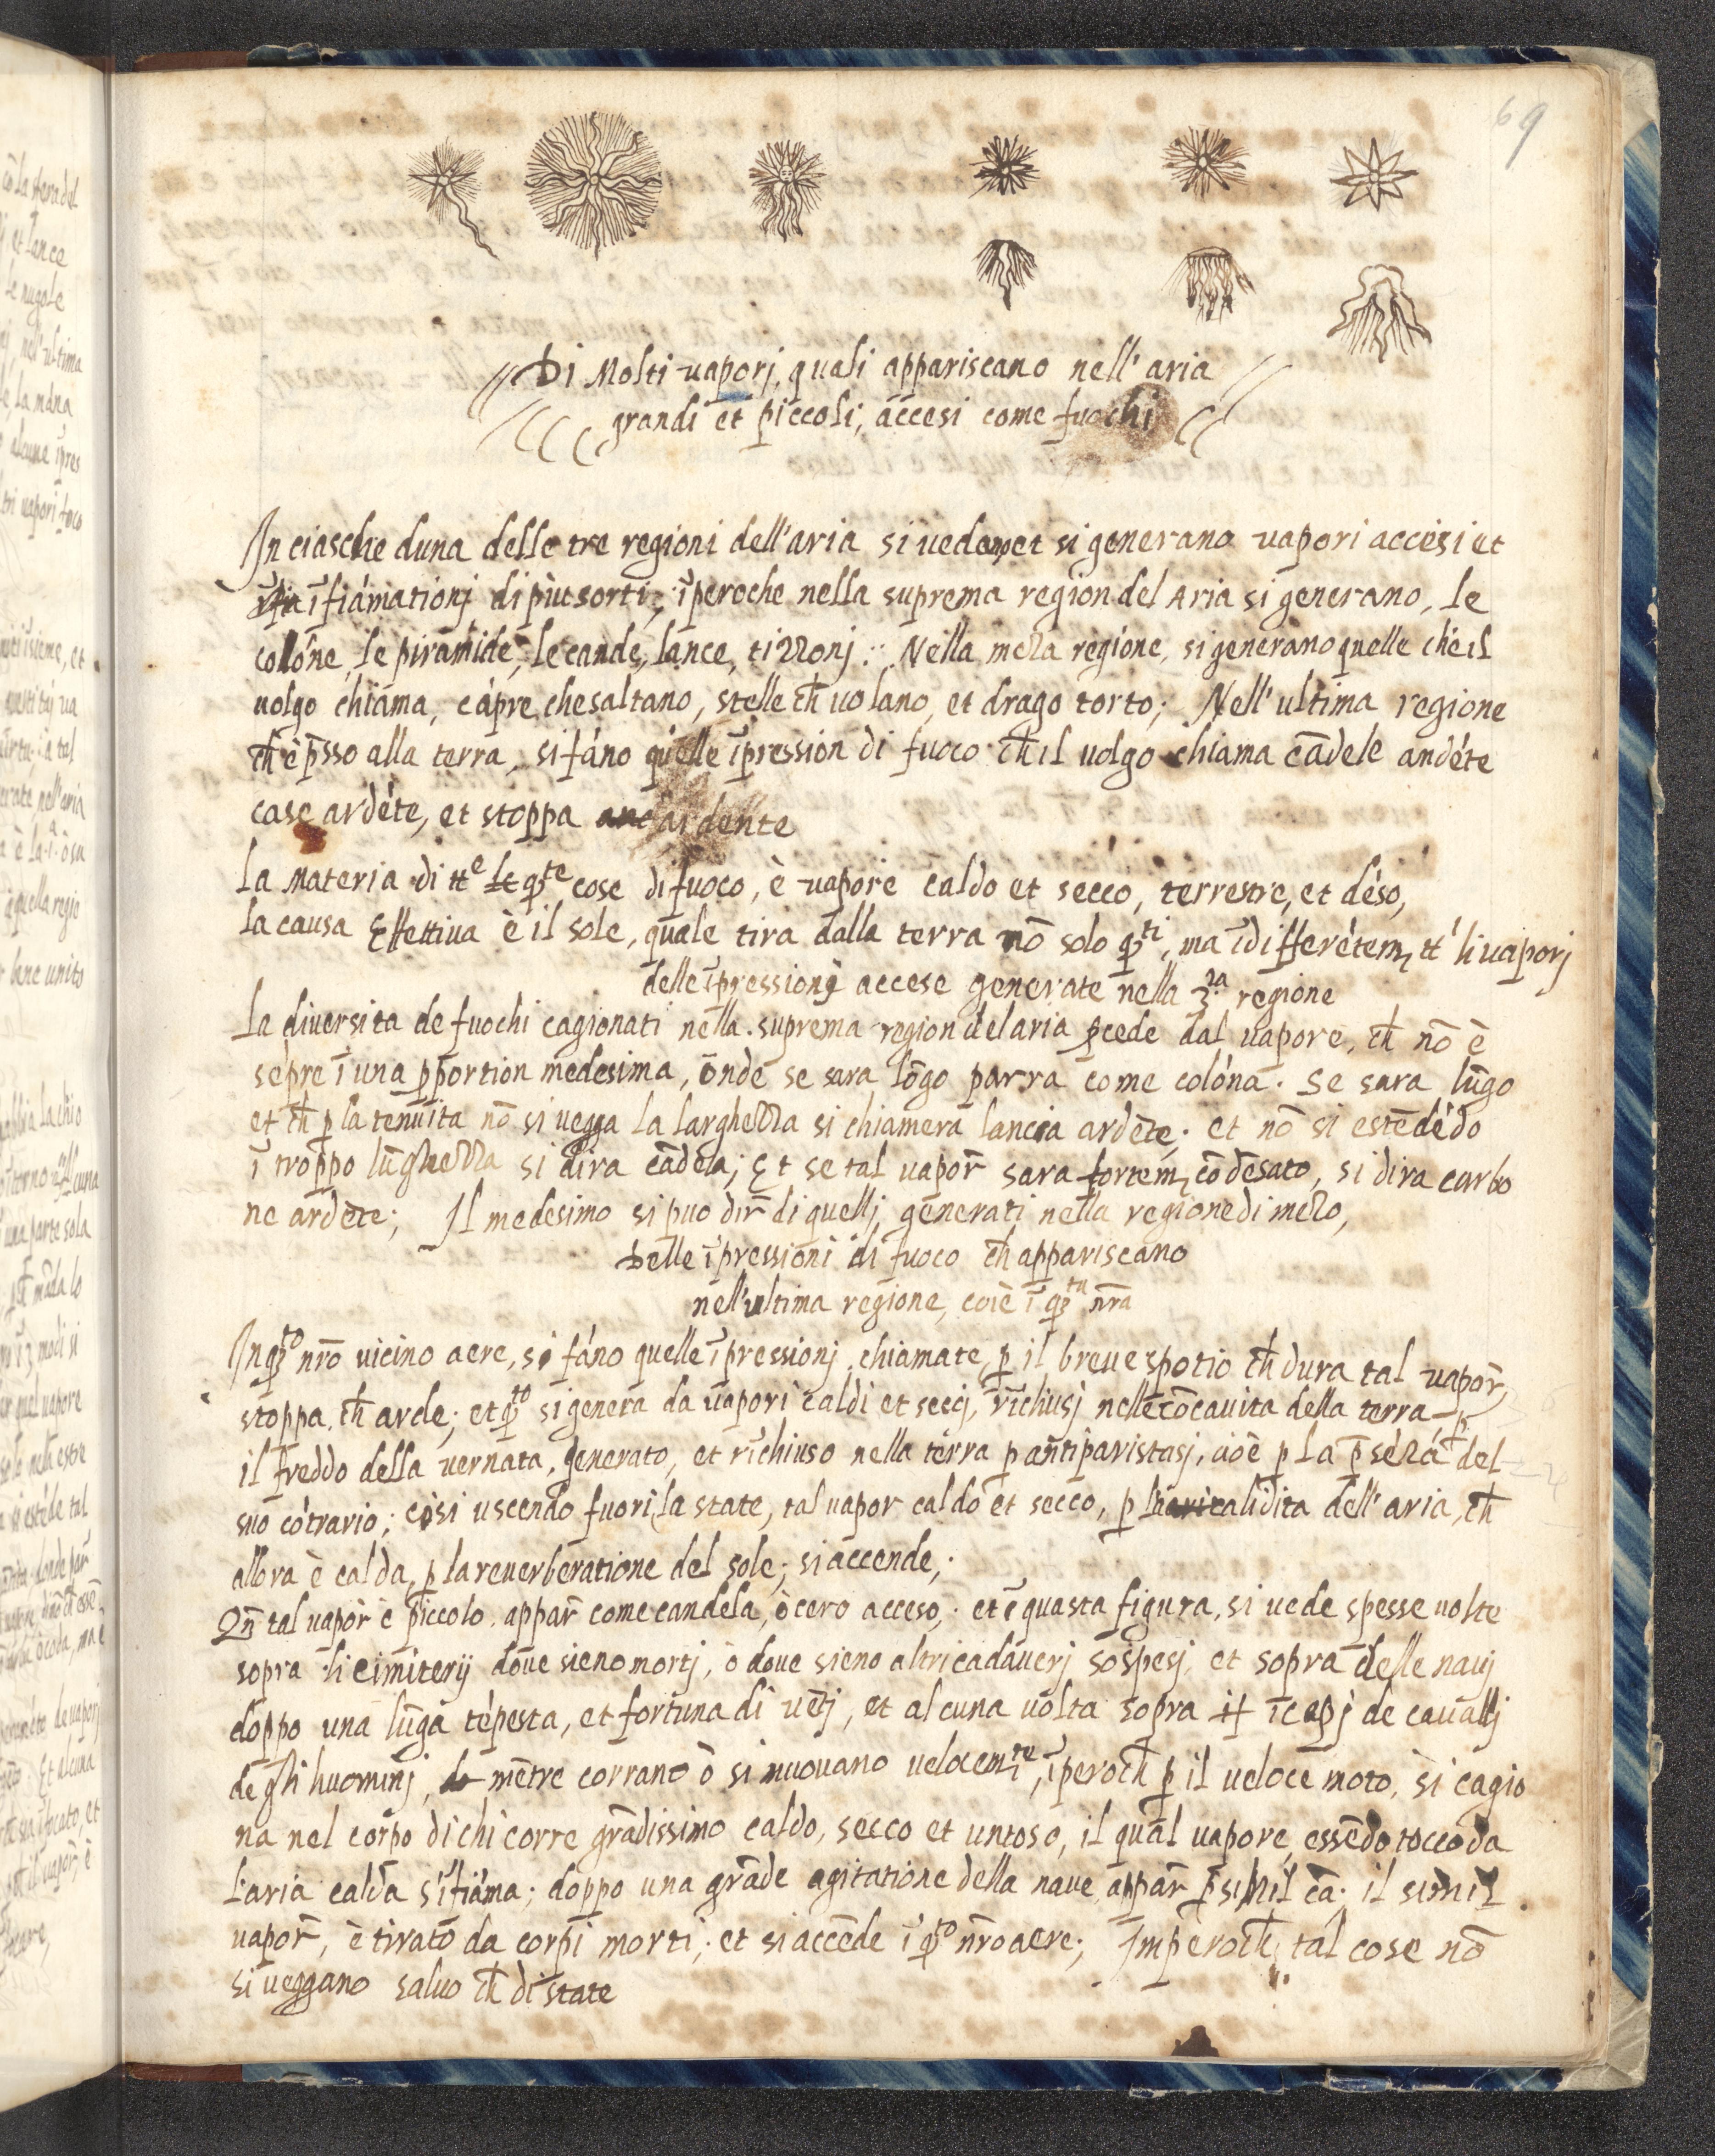 69
Di Molti vaporj, quali appariscano nell' aria
grandi et piccoli, accesi come fuochi
In ciasche duna delle tre regioni dell'aria si uedono et si generano vapori accesi et
īfiámationj di piu sorti, īperoche nella suprema region del Aria si generano, le
colōne, le piramide, le cande, lance, tizzonj. Nella meza regione, si generano quelle che il
uolgo chiama, cápre che saltano, stelle ch̄ uolano, et drago torto; Nell' ultima regione
ch̄ è p̄sso alla terra, si fáno quelle īpression di fuoco ch̄ il uolgo chiama cādele andéte
case ardéte, et stoppa ardente
La Materia di tte le qte cose di fuoco, è vapore caldo et secco, terrestre, et déso,
la causa Effettiua è il sole, quale tira dalla terra nō solo qti, ma īdifferétem tt' li vaporj
delle īpressionj accese generate nella 3za regione
La diuersita de fuochi cagionati nella suprema region del aria ꝓcede dal vapore, ch̄ nō è
sēpre ī una ꝓportion medesima, onde se sara lōgo parra come colóna. Se sara lūgo
et ch̄ ꝑ la tenuita nō si uegga la larghezza si chiamera lancia ardēte; et nō si estēdédo
ī troppo lūghezza si dira cādela; Et se tal vapor̄ sara fortem cōdēsato, si dira carbo
ne ardēte; Il medesimo si puo dir̄ di quellj generati nella regione di mezo,
Delle īpressioni di fuoco ch̄ appariscano
nell'ultima regione, cioè ī qta nr̄a
In qto nr̄o vicino aere, si fáno quelle īpressionj chiamate, ꝑ il breue spatio ch̄ dura tal vapor̄,
stoppa ch̄ arde; et qto si genera da vapori caldi et seccj, rīchiusj nelle cōcauita della terra ꝑ
il freddo della vernata, generato, et rīchiuso nella terra ꝑ antiparistasj, cioè ꝑ la p̄sézá del
suo cótrario; cosi uscendo fuori la state, tal vapor caldo et secco, ꝑ la calidita dell' aria, ch̄
allora è calda, ꝑ la reuerberatione del sole; si accende;
Qn̄ tal vapor è piccolo, appar̄ come candela, ò cero acceso; et ī quasta figura, si uede spesse uolte
sopra li cimiterij doue sieno mortj, ò doue sieno altri cadáuerj sospesj, et sopra delle nauj
doppo una lūga tépesta, et fortuna di uētj, et alcuna uolta sopra i capj de cauallj
de gli huominj, mētre corrano ò si muouano uelocemte, īperoch̄ ꝑ il ueloce moto, si cagio
na nel corpo di chi corre grādissimo caldo, secco et untoso, il qual vapore, essēdo tocco da
l'aria calda s'īfiáma; doppo una grāde agitatione della naue appar̄ ꝑ simil cā; il simil
vapor̄, è tirato da corpi morti; et si accēde ī qto nr̄o aere; Imperoch̄ tal cose nō
si veggano saluo ch̄ di state